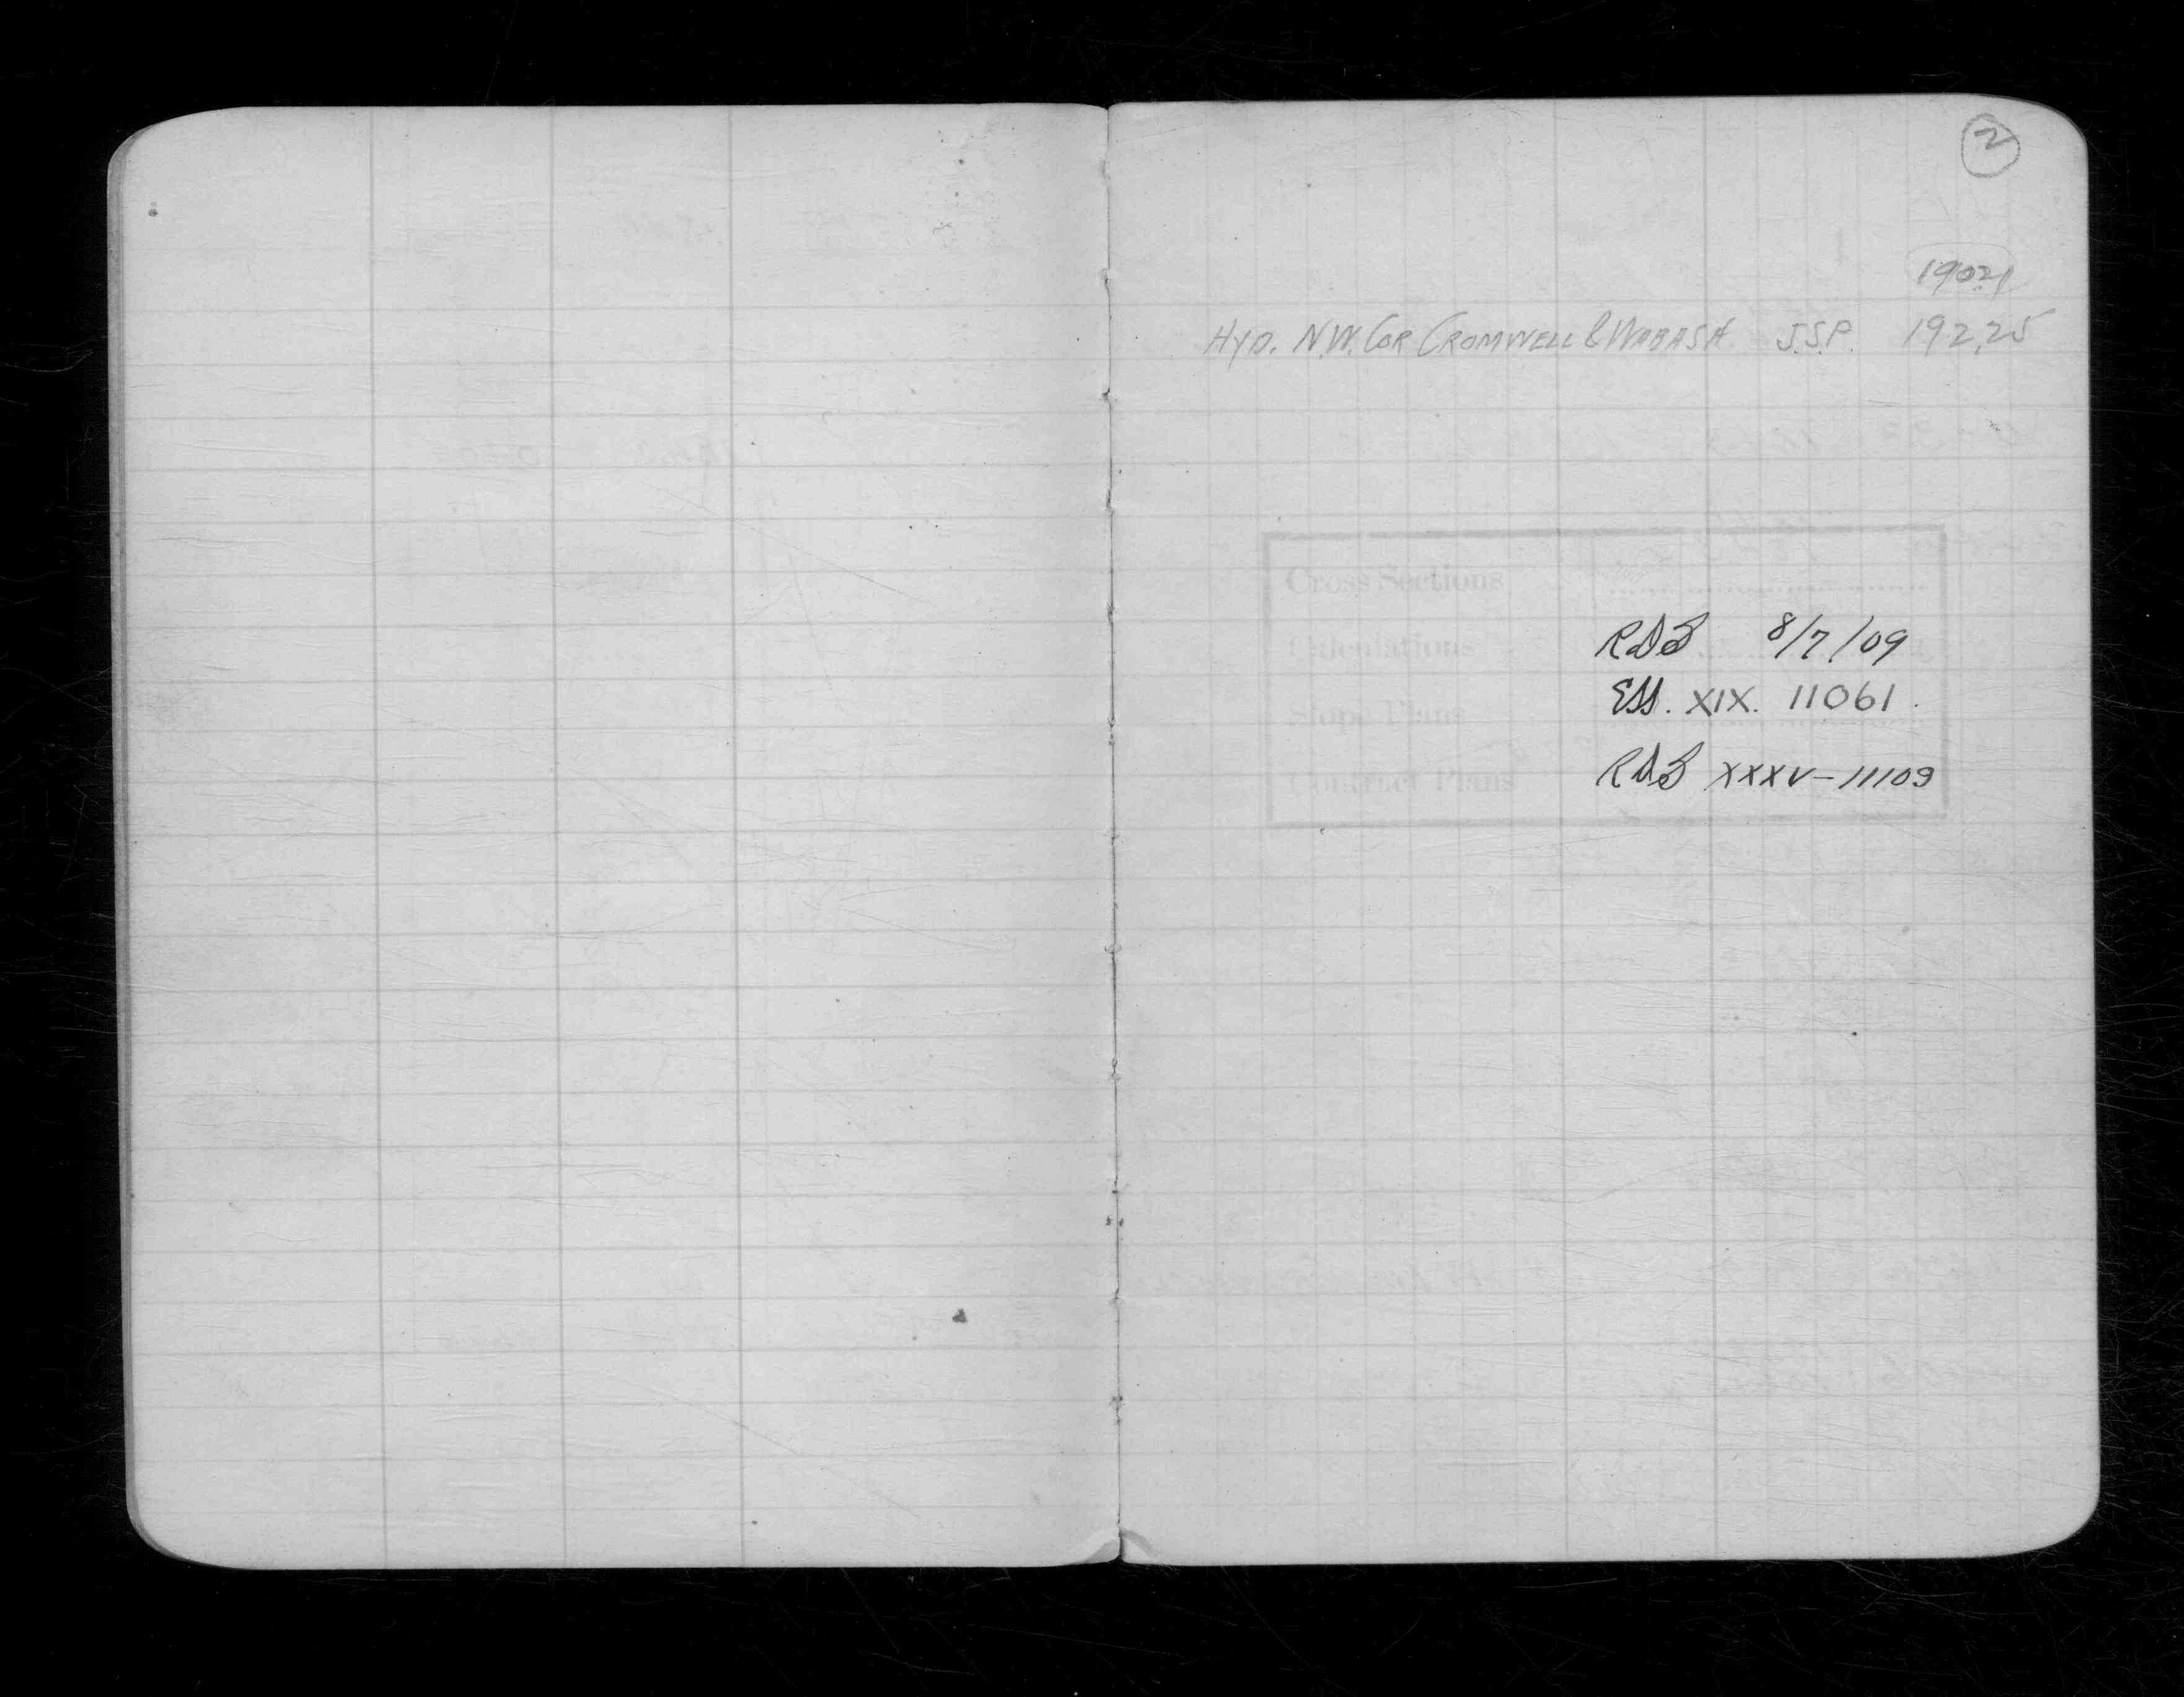 2
19021
HYD. N.W. COR CROMWELL & WABASH J.S.P. 192.25
Cross Sections
RDS 8/7/09
Calculations
ESS. XIX. 11061.
Slope Plans
RDS XXXV-11109
Contract Plans